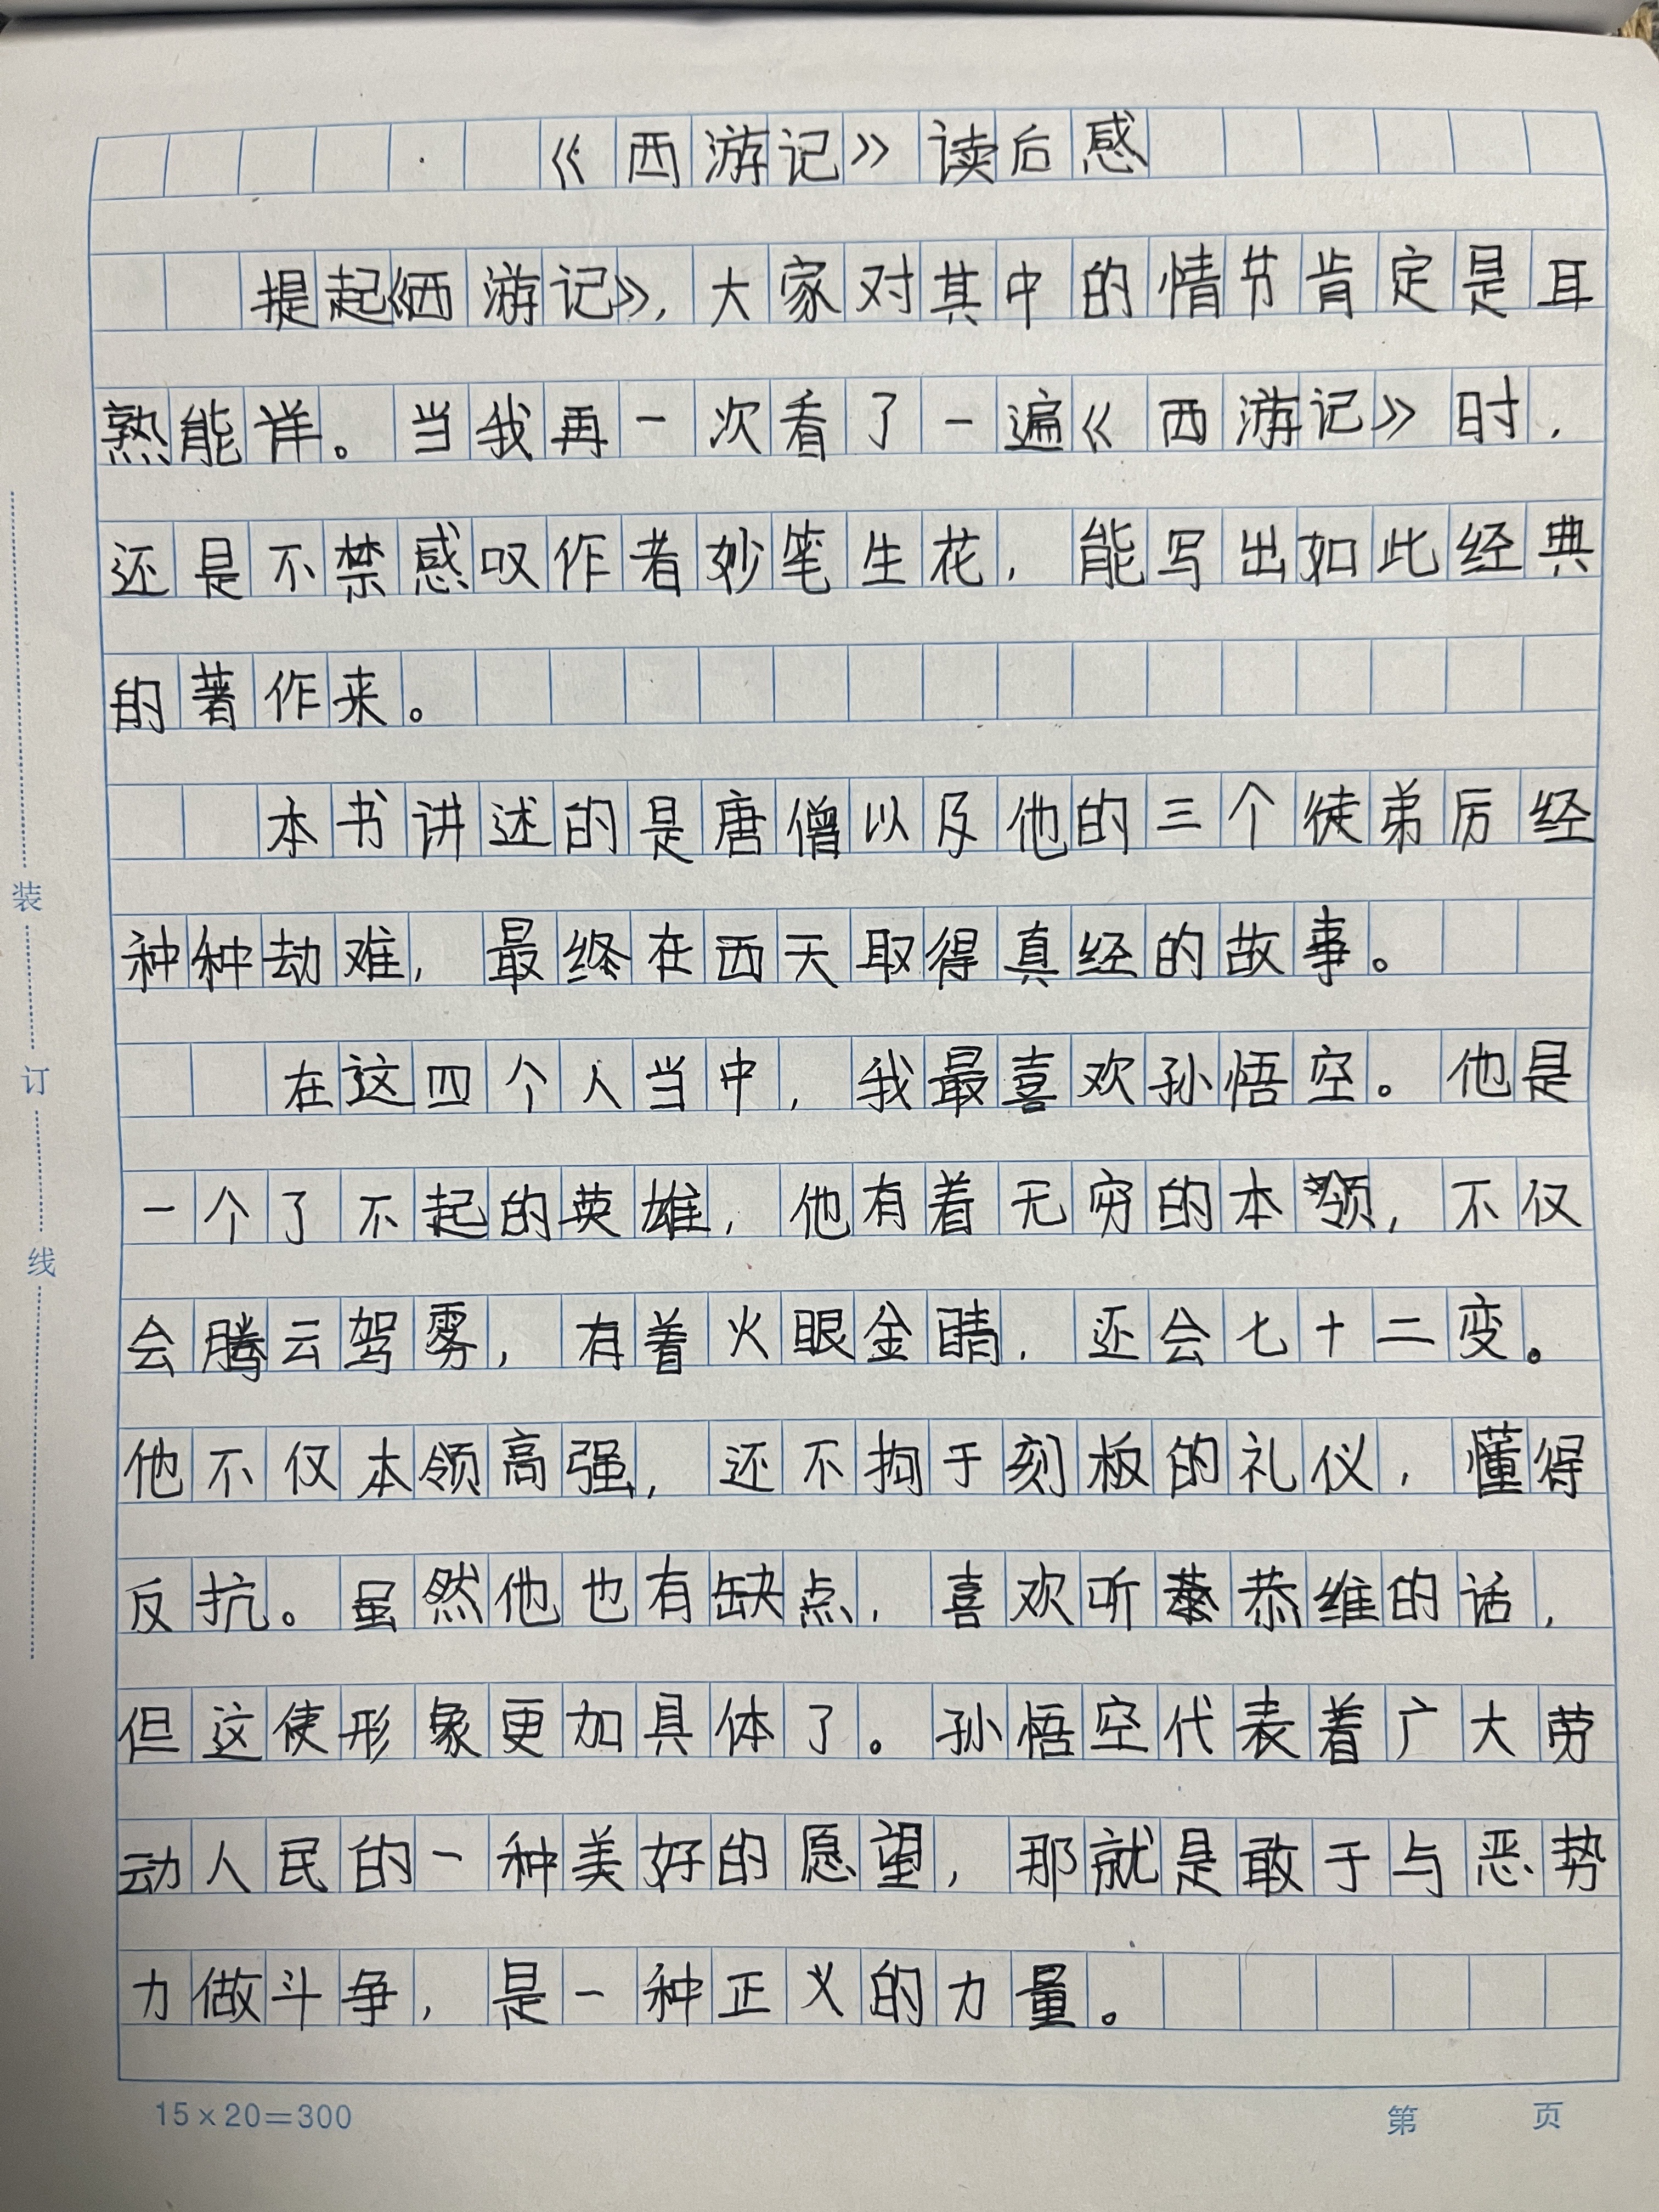 《西游记》读后感
提起《西游记》，大家对其中的情节肯定是耳
熟能详。当我再一次看了一遍《西游记》时，
还是不禁感叹作者妙笔生花，能写出如此经典
的著作来。
本书讲述的是唐僧以及他的三个徒弟历经
种种劫难，最终在西天取得真经的故事。
在这四个人当中，我最喜欢孙悟空。他是
一个了不起的英雄，他有着无穷的本领，不仅
会腾云驾雾，有着火眼金睛，还会七十二变。
他不仅本领高强，还不拘于刻板的礼仪，懂得
反抗。虽然他也有缺点，喜欢听恭维的话，
但这使形象更加具体了。孙悟空代表着广大劳
动人民的一种美好的愿望，那就是敢于与恶势
力做斗争，是一种正义的力量。
装
订
线
15×20=300
第 页